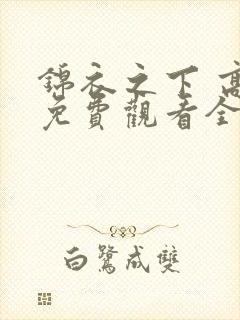 錦衣之下 高
免費觀看全
白鷺成雙